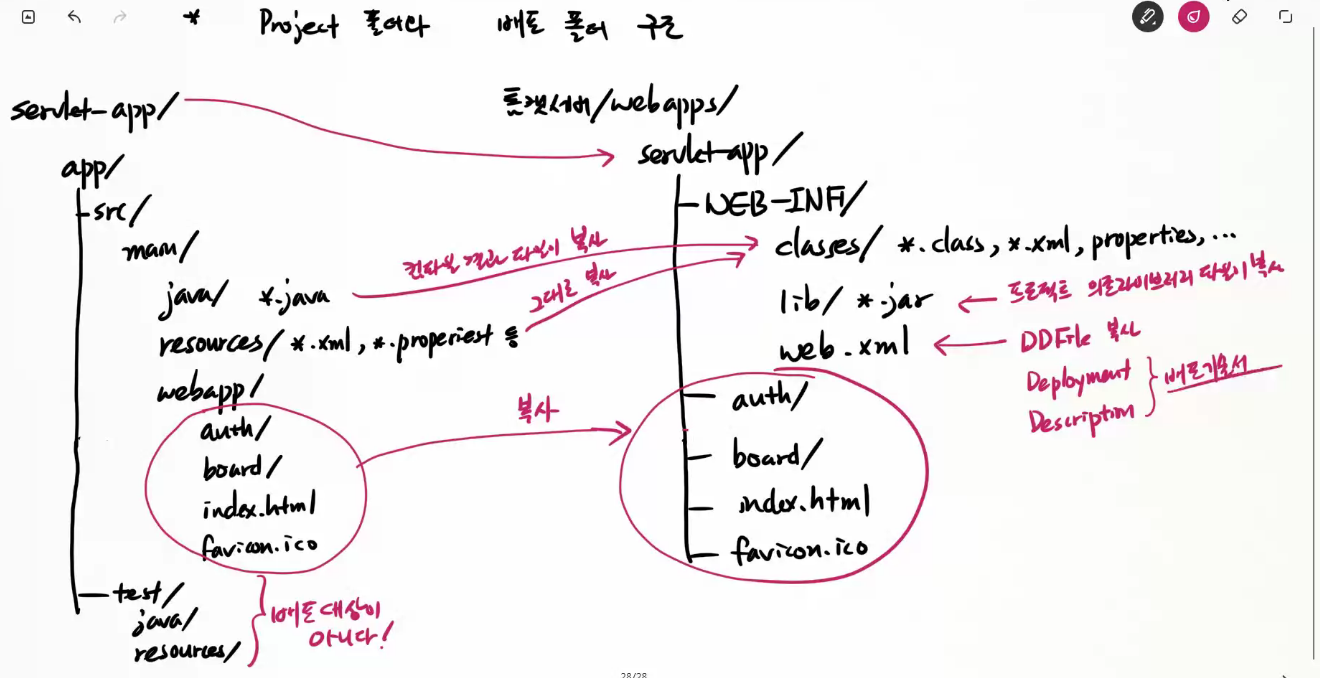 * Project 폴더와 배포 폴더 구조
servlet-app/
app/
src/
main/
java/ *.java
resources/ *.xml, *.properiest 등
webapp/
auth/
board/
index.html
favicon.ico
test/
java/
resources/
배포 대상이
아니다!
컴파일 결과 파일이 복사
그대로 복사
복사
톰캣서버/webapps/
servlet-app/
WEB-INF/
classes/ *.class, *.xml, properties, ...
lib/ *.jar
프로젝트 의존라이브러리 파일이 복사
web.xml
DD File 복사
Deployment
Description
배포기술서
auth/
board/
index.html
favicon.ico
28/28